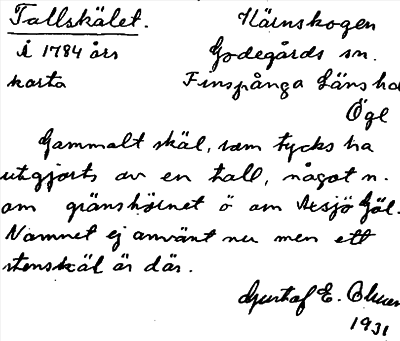 Tallskälet. Kärnskogen
Å 1784 års Godegårds sn.
karta Finspånga Läns ha
Ögl
Gammalt skäl, som tycks ha
utgjorts av en tall, något n.
om gränshörnet ö om Axsjö Göl.
Namnet ej använt nu men ett
stenskäl är där.
Gustaf E.
1931